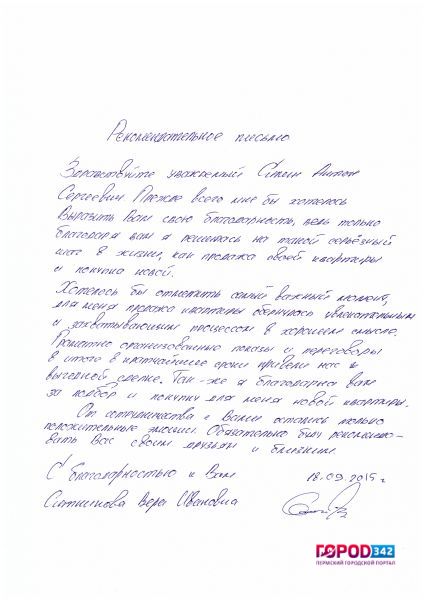 Рекомендательное письмо
Здравствуйте уважаемый Антон
Сергеевич Прежде всего мне бы хотелось
Выразить Вам свою благодарность, ведь только
благодаря вам я решилась на такой серьёзный
шаг в жизни, как продажа своей квартиры
и покупка новой.
Хотелось бы отметить самый важный момент,
для меня продажа квартиры обернулась увлекательным
и захватывающим процессом в хорошем смысле.
Грамотно организованные показы и переговоры
в итоге в кратчайшие сроки привели нас к
выгодной сделке. Так-же я благодарна вам
за подбор и покупку для меня новой квартиры.
От сотрудничества с Вами остались только
положительные эмоции. Обязательно буду рекомендо-
вать Вас своим друзьям и близким.
С благодарностью к Вам 18.09.2015 г
Ситникова Вера Ивановна
ГОРОД 342
ПЕРМСКИЙ ГОРОДСКОЙ ПОРТАЛ